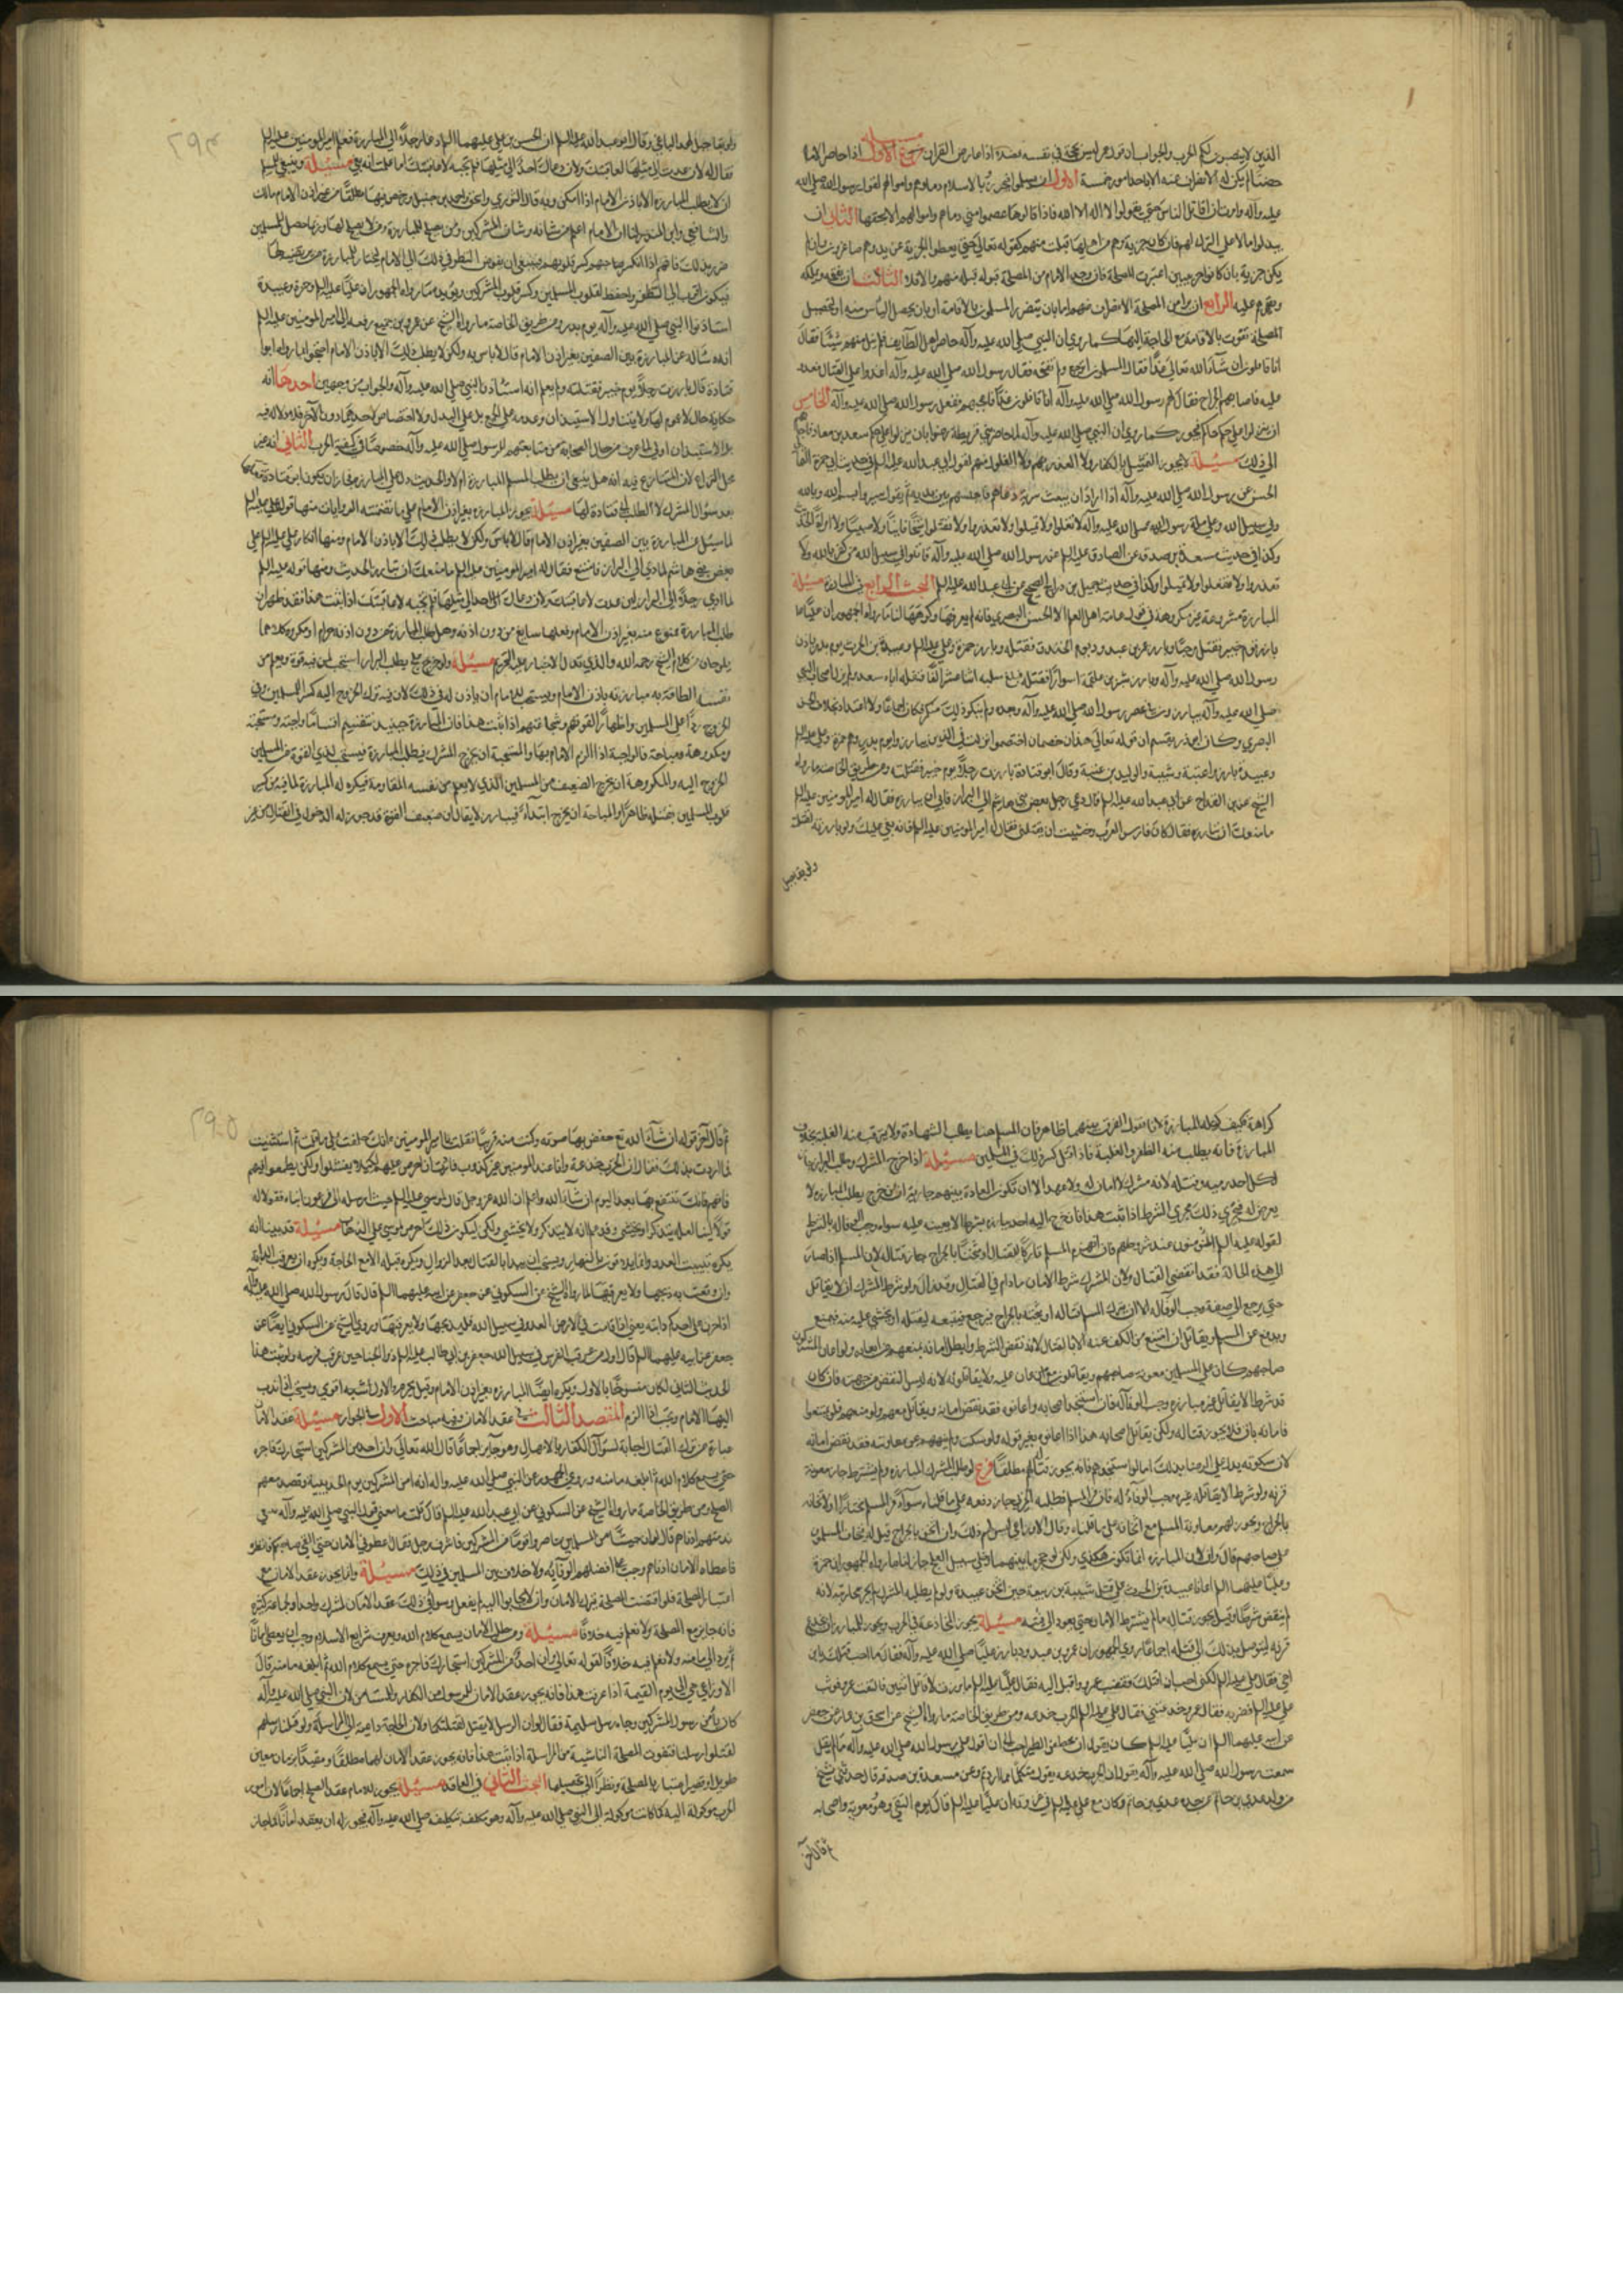 الذين لا يصبرون لكم الحرب والجواب ان قول عمر ليس بحجة في نفسه فضلا اذا عارض القران فروع الاول اذا حاصر الامام
حصنا لم يكن له الانصراف عنه الا باحد امور خمسة الاول ان يسلموا فيحرزوا بالاسلام دماءهم واموالهم لقول رسول الله صلى الله
عليه وآله امرت ان اقاتل الناس حتى يقولوا لا اله الا الله فاذا قالوها عصموا مني دماءهم واموالهم الا بحقها الثاني ان
يبذلوا مالا على الترك لهم فان كان جزية وهم من اهلها قبلت منهم لقوله تعالى حتى يعطوا الجزية عن يد وهم صاغرون وان لم
يكن جزية بان كانوا حربيين اعتبرت المصلحة فان وجد الامام من المصلحة قبوله قبله منهم والا فلا الثالث ان يفتحه ويملكه
وتقهرهم عليه الرابع ان يرى من المصلحة الانصراف عنهم اما بان يتضرر المسلمون بالاقامة او بان يحصل الياس منه او لتحصيل
مصلحة تفوت بالاقامة مع الحاجة اليها كما روي ان النبي صلى الله عليه وآله حاصر اهل الطايف فلم ينل منهم شيئا فقال
انا قافلون ان شآء الله تعالى غدا فقال المسلمون انرجع ولم نفتحه فقال رسول الله صلى الله عليه وآله اغدوا على القتال فغدوا
عليه فاصابهم الجراح فقال لهم رسول الله صلى الله عليه وآله انا قافلون غدا فاعجبهم فقفل رسول الله صلى الله عليه وآله الخامس
ان ينزلوا على حكم حاكم فيجوز كما روي ان النبي صلى الله عليه وآله لما حاصر بني قريظة رضوا بان ينزلوا على حكم سعد بن معاذ فاجابهم
الى ذلك مسئلة لا يجوز التمثيل بالكفار ولا الغدر بهم ولا الغلول منهم لقول ابي عبد الله عليه السلم في حديث ابي حمزة الثمالي
الحسن عن رسول الله صلى الله عليه وآله اذا اراد ان يبعث سرية دعاهم فاجلسهم بين يديه ثم يقول سيروا بسم الله وبالله
وفي سبيل الله وعلى ملة رسول الله صلى الله عليه وآله لا تغلوا ولا تمثلوا ولا تغدروا ولا تقتلوا شيخا فانيا ولا صبيا ولا امرأة الحديث
وكذا في حديث مسعدة بن صدقة عن الصادق عليه السلم عن رسول الله صلى الله عليه وآله قاتلوا في سبيل الله من كفر بالله ولا
تغدروا ولا تغلوا ولا تمثلوا وكذا في حديث جميل بن دراج الصحيح عن ابي عبد الله عليه السلم البحث الرابع في المبارزة مسئلة
المبارزة مشروعة غير مكروهة في قول عامة اهل العلم الا الحسن البصري فانه لم يعرفها وكرهها لنا ما رواه الجمهور ان عليا عليه السلم
بارز يوم خيبر فقتل مرحبا وبارز عمرو بن عبد ود يوم الخندق فقتله وبارز حمزة وعلي عليه السلم وعبيدة بن الحرث يوم بدر باذن
رسول الله صلى الله عليه وآله وبارز بشر بن علقمة اسوارا فقتله فبلغ سلبه اثنا عشر الفا فنفله اياه سعد ولم يزل اصحاب النبي
صلى الله عليه وآله يبارزون في عصر رسول الله صلى الله عليه وآله وبعده ولم ينكر ذلك منكر فكان اجماعا ولا اعتداد بخلاف الحسن
البصري وكان ابو ذر يقسم ان قوله تعالى هذان خصمان اختصموا نزلت في الذين تبارزوا يوم بدر وهم حمزة وعلي عليه السلم
وعبيدة بارزوا عتبة وشيبة والوليد بن عتبة وقال ابو قتادة بارزت رجلا يوم خيبر فقتلته ومن طريق الخاصة ما رواه
الشيخ عن ابن القداح عن ابي عبد الله عليه السلم قال دعى رجل بعض بني هاشم الى البراز فابى ان يبارزه فقال له امير المؤمنين عليه السلم
ما منعك ان تبارزه فقال كان فارس العرب وخشيت ان يغلبني فقال له امير المؤمنين عليه السلم فانه بغى عليك ولو بارزته لقتلته
ولو بغى جبل
٢٩٤
ولو بغى جبل على جبل لهد الباغي وقال ابو عبد الله عليه السلم ان الحسن بن علي عليهما السلم دعا رجلا الى المبارزة فعلم امير المؤمنين عليه السلم
فقال له لان عدت الى مثلها لعاقبتك ولان دعاك احد الى مثلها فلم تجبه لاعاقبنك اما علمت انه بغى مسئلة وينبغي للمسلم
ان لا يطلب المبارزة الا باذن الامام اذا امكن وبه قال الثوري واسحق واحمد بن حنبل ورخص فيها مطلقا من غير اذن الامام مالك
والشافعي وابن المنذر لنا ان الامام اعلم فرسانه وفرسان المشركين ومن يصلح للمبارزة ومن لا يصلح لها وربما حصل للمسلمين
ضرر بذلك فانهم اذا انكسر صاحبهم كسر قلوبهم فينبغي ان يفوض النظر في ذلك الى الامام ليختار للمبارزة من يرتضيه لها
فيكون اقرب الى الظفر واحفظ لقلوب المسلمين وكسر قلوب المشركين ويؤيده ما رواه الجمهور ان عليا عليه السلم وحمزة وعبيدة
استاذنوا النبي صلى الله عليه وآله يوم بدر ومن طريق الخاصة ما رواه الشيخ عن عمرو بن جميع رفعه الى امير المؤمنين عليه السلم
انه سئل عن المبارزة بين الصفين بغير اذن الامام قال لا باس به ولكن لا يطلب ذلك الا باذن الامام احتجوا بما رواه ابو
قتادة قال بارزت رجلا يوم خيبر فقتلته ولم يعلم انه استأذن النبي صلى الله عليه وآله والجواب من وجهين احدهما انه
حكاية حال لا عموم لها ولا يتناول الاستيذان وعدمه على الجمع بل على البدل ولا اختصاص لاحدهما دون الآخر فلا دلالة فيه
بل الاستيذان اولى لما عرف من حال الصحابة من متابعتهم للرسول صلى الله عليه وآله خصوصا في كيفية الحرب الثاني انه غير
محل النزاع لان المتنازع فيه انه هل ينبغي ان يطلب المسلم المبارزة ام لا والحديث دال على المبارزة فجاز ان يكون ابو قتادة فعلها
بعد سؤال المشرك لا الطلب من قتادة لها مسئلة تجوز المبارزة بغير اذن الامام على ما تضمنته الروايات منها قول علي عليه السلم
لما سئل عن المبارزة بين الصفين بغير اذن الامام قال لا باس ولكن لا يطلب ذلك الا باذن الامام ومنها انكار علي عليه السلم على
بعض بني هاشم لما دعي الى البراز فامتنع فقال له امير المؤمنين عليه السلم ما منعك ان تبارزه الحديث ومنها قوله عليه السلم
يلوحان من كلام الشيخ رحمه الله والذي تدل الاخبار عليه التحريم مسئلة ولو خرج علج يطلب البراز استحب لمن فيه قوة ويعلم من
نفسه الطاقة به مبارزته باذن الامام ويستحب للامام ان ياذن له في ذلك لان في ترك الخروج اليه كسرا للمسلمين وفي
الخروج ردا عن المسلمين واظهارا لقوتهم وشجاعتهم اذا ثبت هذا فان المبارزة حينئذ تنقسم اقساما واجبة ومستحبة
ومكروهة ومباحة فالواجبة اذا الزم الامام بها والمستحبة ان يخرج المشرك فيطلب المبارزة فيستحب لذي القوة من المسلمين
الخروج اليه والمكروهة ان يخرج الضعيف من المسلمين الذي لا يعلم من نفسه المقاومة فيكره له المبارزة لما فيه من كسر
قلوب المسلمين بقتله ظاهرا والمباحة ان يخرج ابتداء فيبارز لا يقال ان ضعيف القوة قد جوز له الدخول في القتال من غير
كراهة فكيف كره له المبارزة لانا نقول الفرق بينهما ظاهر فان المسلم هنا يطلب الشهادة ولا يترقب منه الغلبة بخلاف
المبارزة فانه يطلب منه الظفر والغلبة فاذا قتل كسر ذلك في المسلمين مسئلة اذا خرج المشرك وطلب البراز جاز
لكل احد رميه وقتله لانه مشرك لا امان له ولا عهد الا ان تكون العادة بينهم جارية ان من خرج يطلب المبارزة لا
يعرض له فيجري ذلك مجرى الشرط اذا ثبت هذا فان خرج اليه احد يبارزه بشرط الا يعينه عليه سواه وجب الوفاء له بالشرط
لقوله عليه السلم المؤمنون عند شروطهم فان انهزم المسلم تاركا للقتال او مثخنا بالجراح جاز قتاله لان المسلم اذا صار
الى هذه الحالة فقد انقضى القتال ولان المشرك شرط الامان ما دام في القتال وقد زال ولو شرط المشرك ان لا يقاتل
حتى يرجع الى صفه وجب الوفاء له الا ان يترك المسلم قتاله او يثخنه بالجراح فيرجع فيتبعه ليقتله او يخشى عليه منه فيمنع
ويدفع عن المسلم ويقاتل ان امتنع من الكف عنه الا بالقتال لانه نقض الشرط وابطل امانه بمنعهم من انجاده ولو اعان المشركون
صاحبهم كان على المسلمين معونة صاحبهم ويقاتلون من اعان عليه ولا يقاتلونه لانه ليس النقض من جهته فان كان
قد شرط الا يقاتل غير مبارزه وجب الوفاء له فان استنجد اصحابه واعانوه فقد نقض امانه ويقاتل معهم ولو منعهم فلم يمتنعوا
فامانه باق فلا يجوز قتاله ولكن يقاتل اصحابه هذا اذا اعانوه بغير قوله ولو سكت ولم ينههم عن معاونته فقد نقض امانه
لان سكوته يدل على الرضا بذلك اما لو استنجدهم فانه يجوز قتالهم مطلقا فرع لو طلب المشرك المبارزة ولم يشترط جاز معونة
قرنه ولو شرط الا يقاتله غيره وجب الوفاء له فان فر المسلم فطلبه الحربي جاز دفعه على ما قلناه سواء فر المسلم مختارا او لاثخانه
بالجراح ويجوز لهم معاونة المسلم مع اثخانه على ما قلناه وقال الاوزاعي ليس لهم ذلك وان اثخن بالجراح قيل له فخاف المسلمون
على صاحبهم قال وان لان المبارزة انما تكون هكذا ولكن لو حجزوا بينهما وخلي سبيل العلج جاز لنا ما رواه الجمهور ان حمزة
وعليا عليهما السلم اعانا عبيدة بن الحرث على قتل شيبة بن ربيعة حين اثخن عبيدة ولو لم يطلبه المشرك لم يجز محاربته لانه
لم ينقض شرطا وقيل يجوز قتاله ما لم يشترط الامان حتى يعود الى فئته مسئلة يجوز المخادعة في الحرب ويجوز للمبارز ان يخدع
قرنه ليتوصل بذلك الى قتله اجماعا روى الجمهور ان عمرو بن عبد ود بارز عليا صلى الله عليه وآله فقال ما احب قتلك يا بن
اخي فقال علي عليه السلم لكني احب ان اقتلك فغضب عمرو واقبل اليه فقال علي عليه السلم ما برزت لاقاتل اثنين فالتفت عمرو فوثب
علي عليه السلم فضربه فقال عمرو خدعتني فقال علي عليه السلم الحرب خدعة ومن طريق الخاصة ما رواه الشيخ عن اسحق بن عمار عن جعفر
عن ابيه عليهما السلم ان عليا عليه السلم كان يقول لان تخطفني الطير احب الي من ان اقول على رسول الله صلى الله عليه وآله ما لم يقل
سمعت رسول الله صلى الله عليه وآله يقول ان الحرب خدعة يقول تكلموا بما اردتم وعن مسعدة بن صدقة قال حدثني شيخ
من ولد عدي بن حاتم عن جده عدي بن حاتم وكان مع علي عليه السلم في غزواته ان عليا عليه السلم قال يوم التقى هو ومعوية واصحابه
ثم قال في آخر
٢٩٥
ثم قال في آخر قوله ان شآء الله تع خفض بها صوته وكنت منه قريبا فقلت يا امير المؤمنين انك حلفت على ما قلت ثم استثنيت
فما اردت بذلك فقال ان الحرب خدعة وانا عند المؤمنين غير كذوب فاردت ان احرض اصحابي عليهم لكيلا يفشلوا ولكي يطمعوا فيهم
فافهم فانك تنتفع بها بعد اليوم ان شآء الله واعلم ان الله عز وجل قال لموسى عليه السلم حيث ارسله الى فرعون ائتياه فقولا له
قولا لينا لعله يتذكر او يخشى وقد علم انه لا يتذكر ولا يخشى ولكن ليكون ذلك احرص لموسى على الذهاب مسئلة قد بينا انه
يكره تبييت العدو وانما يلاقون بالنهار ويستحب ان يبدا بالقتال بعد الزوال ويكره قبله الا مع الحاجة ويكره ان يعرقب الدابة
وان وقفت به ذبحها ولا يعرقبها لما رواه الشيخ عن السكوني عن جعفر عن ابيه عليهما السلم قال قال رسول الله صلى الله عليه وآله
اذا حرن على احدكم دابته يعني اذا قامت في الارض العدو في سبيل الله فليذبحها ولا يعرقبها وروى الشيخ عن السكوني ايضا عن
جعفر عن ابيه عليهما السلم قال اول من عرقب الفرس في سبيل الله جعفر بن ابي طالب عليه السلم ذو الجناحين عرقب فرسه ولو ثبت هذا
الحديث الثاني لكان منسوخا بالاول ويكره ايضا المبارزة بغير اذن الامام وقيل يحرم والاول اشبه اقوى ويستحب اذا ندب
اليها الامام وتجب اذا الزم المقصد الثالث في عقد الامان وفيه مباحث الاول في الجواز مسئلة عقد الامان
عبارة عن ترك القتال اجابة لسؤال الكفار بالامهال وهو جايز اجماعا قال الله تعالى وان احد من المشركين استجارك فاجره
حتى يسمع كلام الله ثم ابلغه مامنه وروى الجمهور عن النبي صلى الله عليه وآله انه امن المشركين يوم الحديبية وعقد معهم
الصلح ومن طريق الخاصة ما رواه الشيخ عن السكوني عن ابي عبد الله عليه السلم قال قلت ما معنى قول النبي صلى الله عليه وآله يسعى
بذمتهم ادناهم قال لو ان جيشا من المسلمين حاصروا قوما من المشركين فاشرف رجل فقال اعطوني الامان حتى القى صاحبكم فاناظره
فاعطاه الامان ادناهم وجب على افضلهم الوفاء به ولا خلاف بين المسلمين في ذلك مسئلة وانما يجوز عقد الامان مع
اعتبار المصلحة فلو اقتضت المصلحة ترك الامان وان لا يجابوا اليه لم يفعل وسواء في ذلك عقد الامان لمشرك واحد او لجماعة كثيرة
فانه جايز مع المصلحة ولا نعلم فيه خلافا مسئلة ومن طلب الامان ليسمع كلام الله ويعرف شرايع الاسلام وجب ان يعطى امانا
ثم يرد الى مامنه ولا نعلم فيه خلافا لقوله تعالى وان احد من المشركين استجارك فاجره حتى يسمع كلام الله ثم ابلغه مامنه قال
الاوزاعي هي الى يوم القيمة اذا عرفت هذا فانه يجوز عقد الامان للرسول من الكفار والمستامن لان النبي صلى الله عليه وآله
كان يأمن رسول المشركين وجاءه رسل مسيلمة فقال لولا ان الرسل لا يقتل لقتلتكما ولان الحاجة داعية الى المراسلة ولو قتلنا رسلهم
لقتلوا رسلنا فتفوت المصلحة الناشئة من المراسلة اذا ثبت هذا فانه يجوز عقد الامان لهما مطلقا ومقيدا بزمان معين
طويل او قصير اعتبارا بالمصلحة ونظرا الى تحصيلها البحث الثاني في العاقد مسئلة يجوز للامام عقد الصلح اجماعا لان امور
الحرب موكولة اليه كما كانت موكولة الى النبي صلى الله عليه وآله وهو مكلف بتكليف صلى الله عليه وآله فيجوز له ان يعقد امانا لما جاز